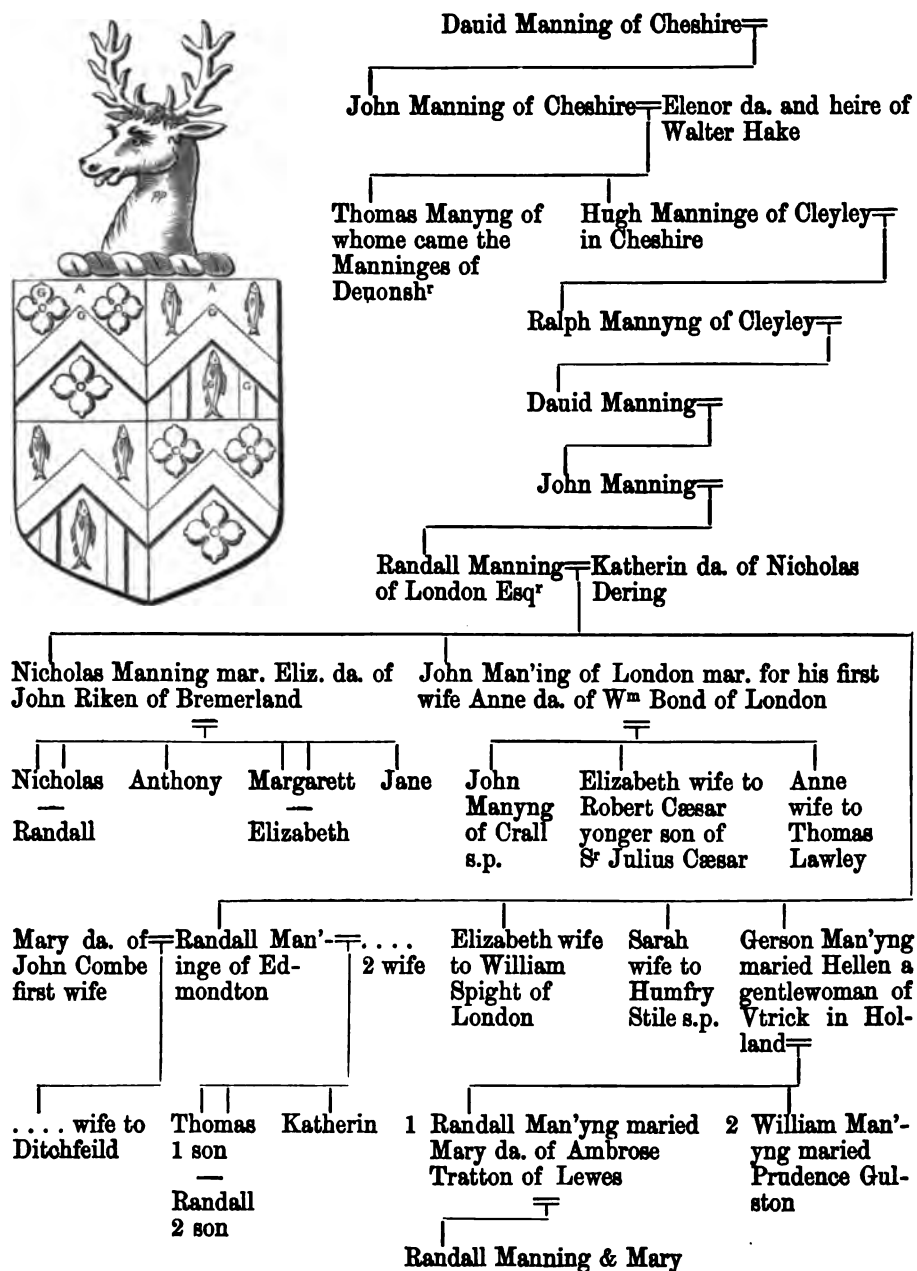 Dauid Manning of Cheshire
John Manning of Cheshire
Elenor da. and heire of
Walter Hake
Thomas Manyng of
whome came the
Manninges of
Deuonshʳ
Hugh Manninge of Cleyley
in Cheshire
G A G
A G
G
Ralph Mannyng of Cleyley
Dauid Manning
John Manning
Randall Manning
of London Esqʳ
Katherin da. of Nicholas
Dering
Nicholas Manning mar. Eliz. da. of
John Riken of Bremerland
John Man'ing of London mar. for his first
wife Anne da. of Wᵐ Bond of London
Nicholas
Randall
Anthony
Margarett
Elizabeth
Jane
John
Manyng
of Crall
s.p.
Elizabeth wife to
Robert Cæsar
yonger son of
Sʳ Julius Cæsar
Anne
wife to
Thomas
Lawley
Mary da. of
John Combe
first wife
Randall Man'-
inge of Ed-
mondton
. . . .
2 wife
Elizabeth wife
to William
Spight of
London
Sarah
wife to
Humfry
Stile s.p.
Gerson Man'yng
maried Hellen a
gentlewoman of
Vtrick in Hol-
land
. . . . wife to
Ditchfeild
Thomas
1 son
Randall
2 son
Katherin
1 Randall Man'yng maried
Mary da. of Ambrose
Tratton of Lewes
2 William Man'-
yng maried
Prudence Gul-
ston
Randall Manning & Mary